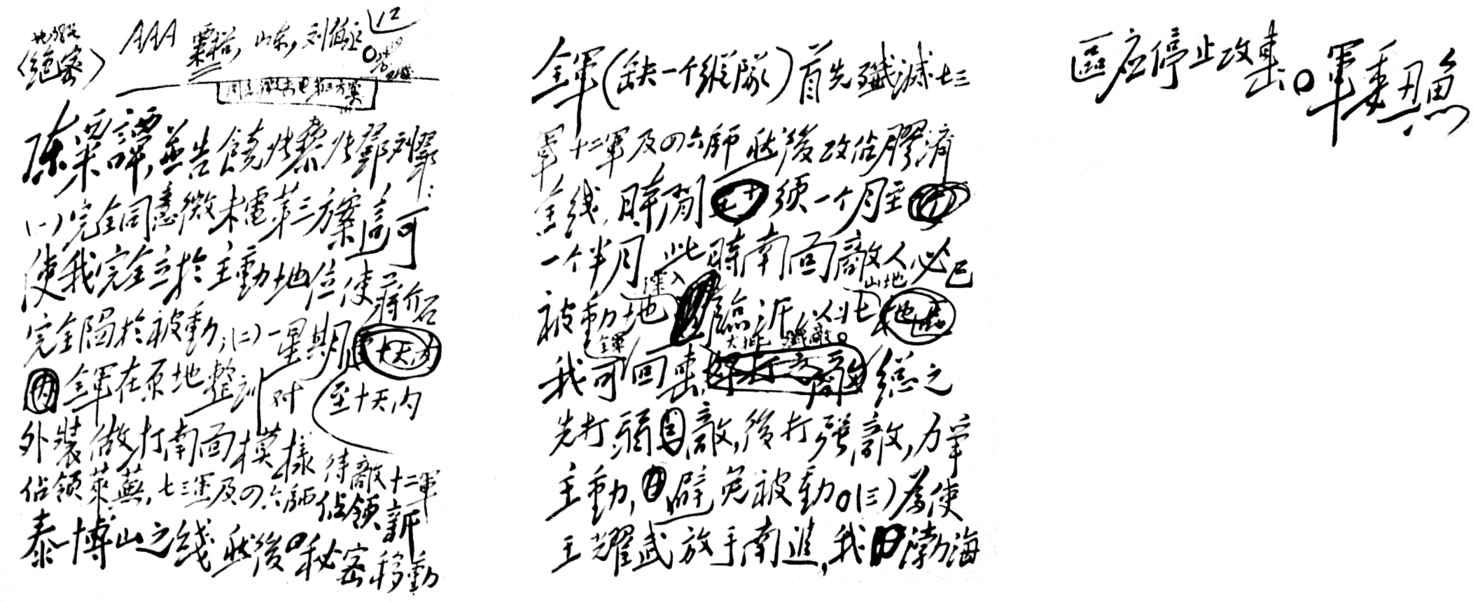 〈絕密〉 AAA
陈粟譚,並告饒张黎,张鄧刘鄒:
(一)完全同意微未電第三方案,這可
使我完全立於主動地位,使蔣介石
完全陷於被動,(二)一星期
至十天内
全軍在原地整訓,对
外裝做打南面模樣,待敵十二軍
佔領萊蕪,七三軍及四六師佔領新
泰博山之綫,然後秘密移動
全軍(缺一个縱隊)首先殲滅七三
軍十二軍及四六師,然後攻佔膠濟
全綫,時間須一个月至
一个半月,此時南面敵人必已
深入 山地
被動地 臨沂以北
全軍 大批 殲敵。
我可回擊 總之
先打弱敵,後打强敵,力爭
主動,避免被動。(三)為使
王耀武放手南進,我渤海
區应停止攻击。軍委丑魚